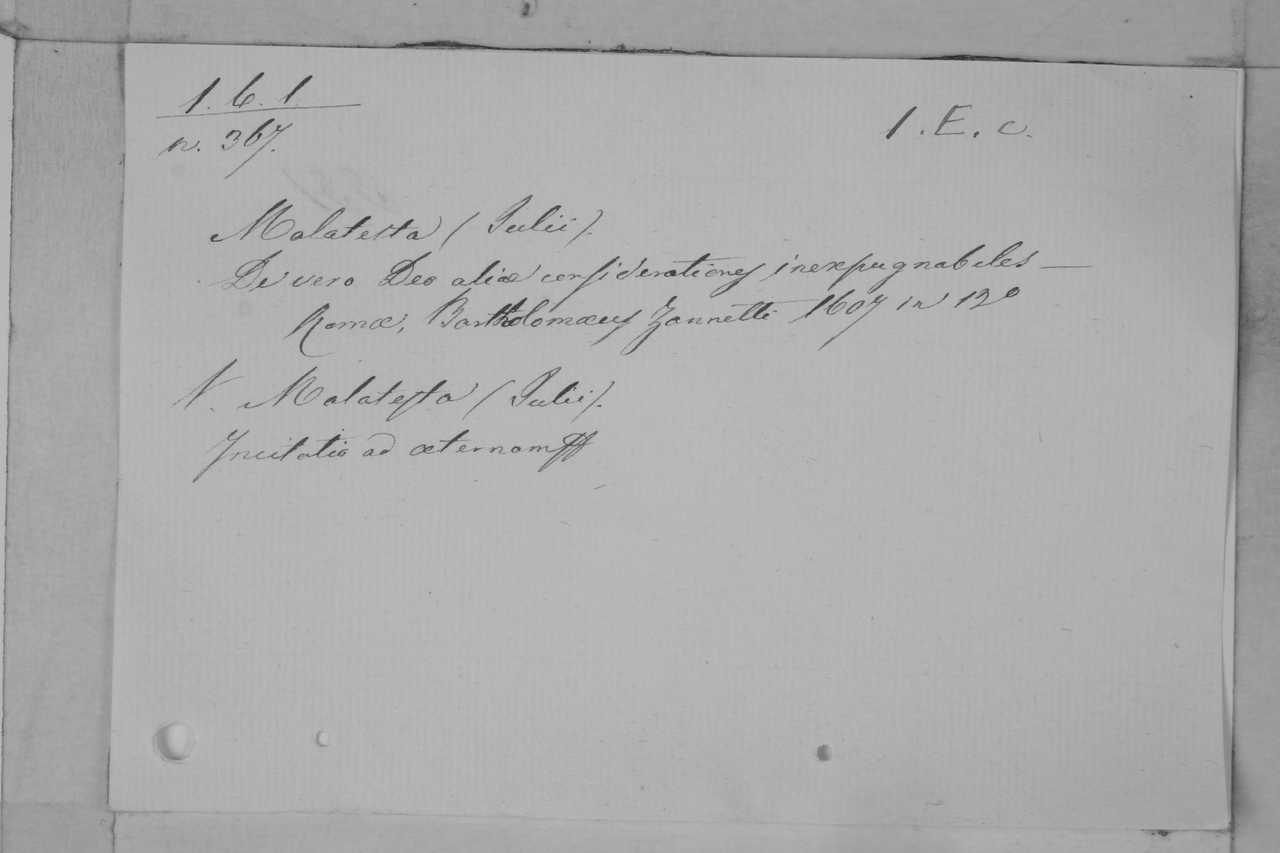 1. 6. 1
n. 367.
1. E. c.
Malatesta (Julii).
De vero Deo aliæ considerationes inexpugnabeles —
Romæ, Bartholomæus Zannetti 1607 in 12°
V. Malatesta (Julii).
Incitatio ad æternam